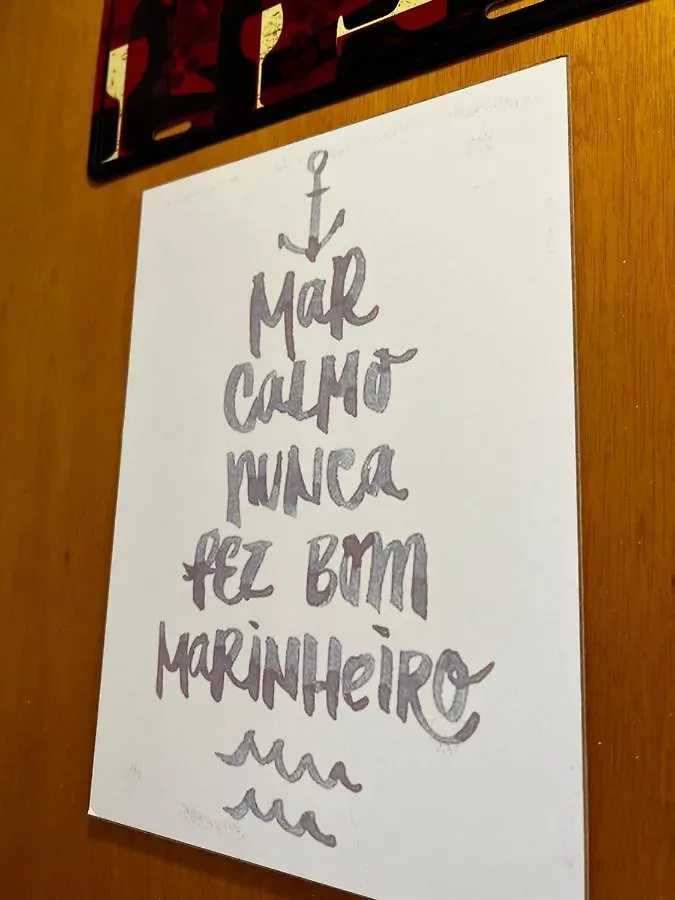 MaR
CaLMO
NUNCa
fEZ BOM
MaRiNHeiRO